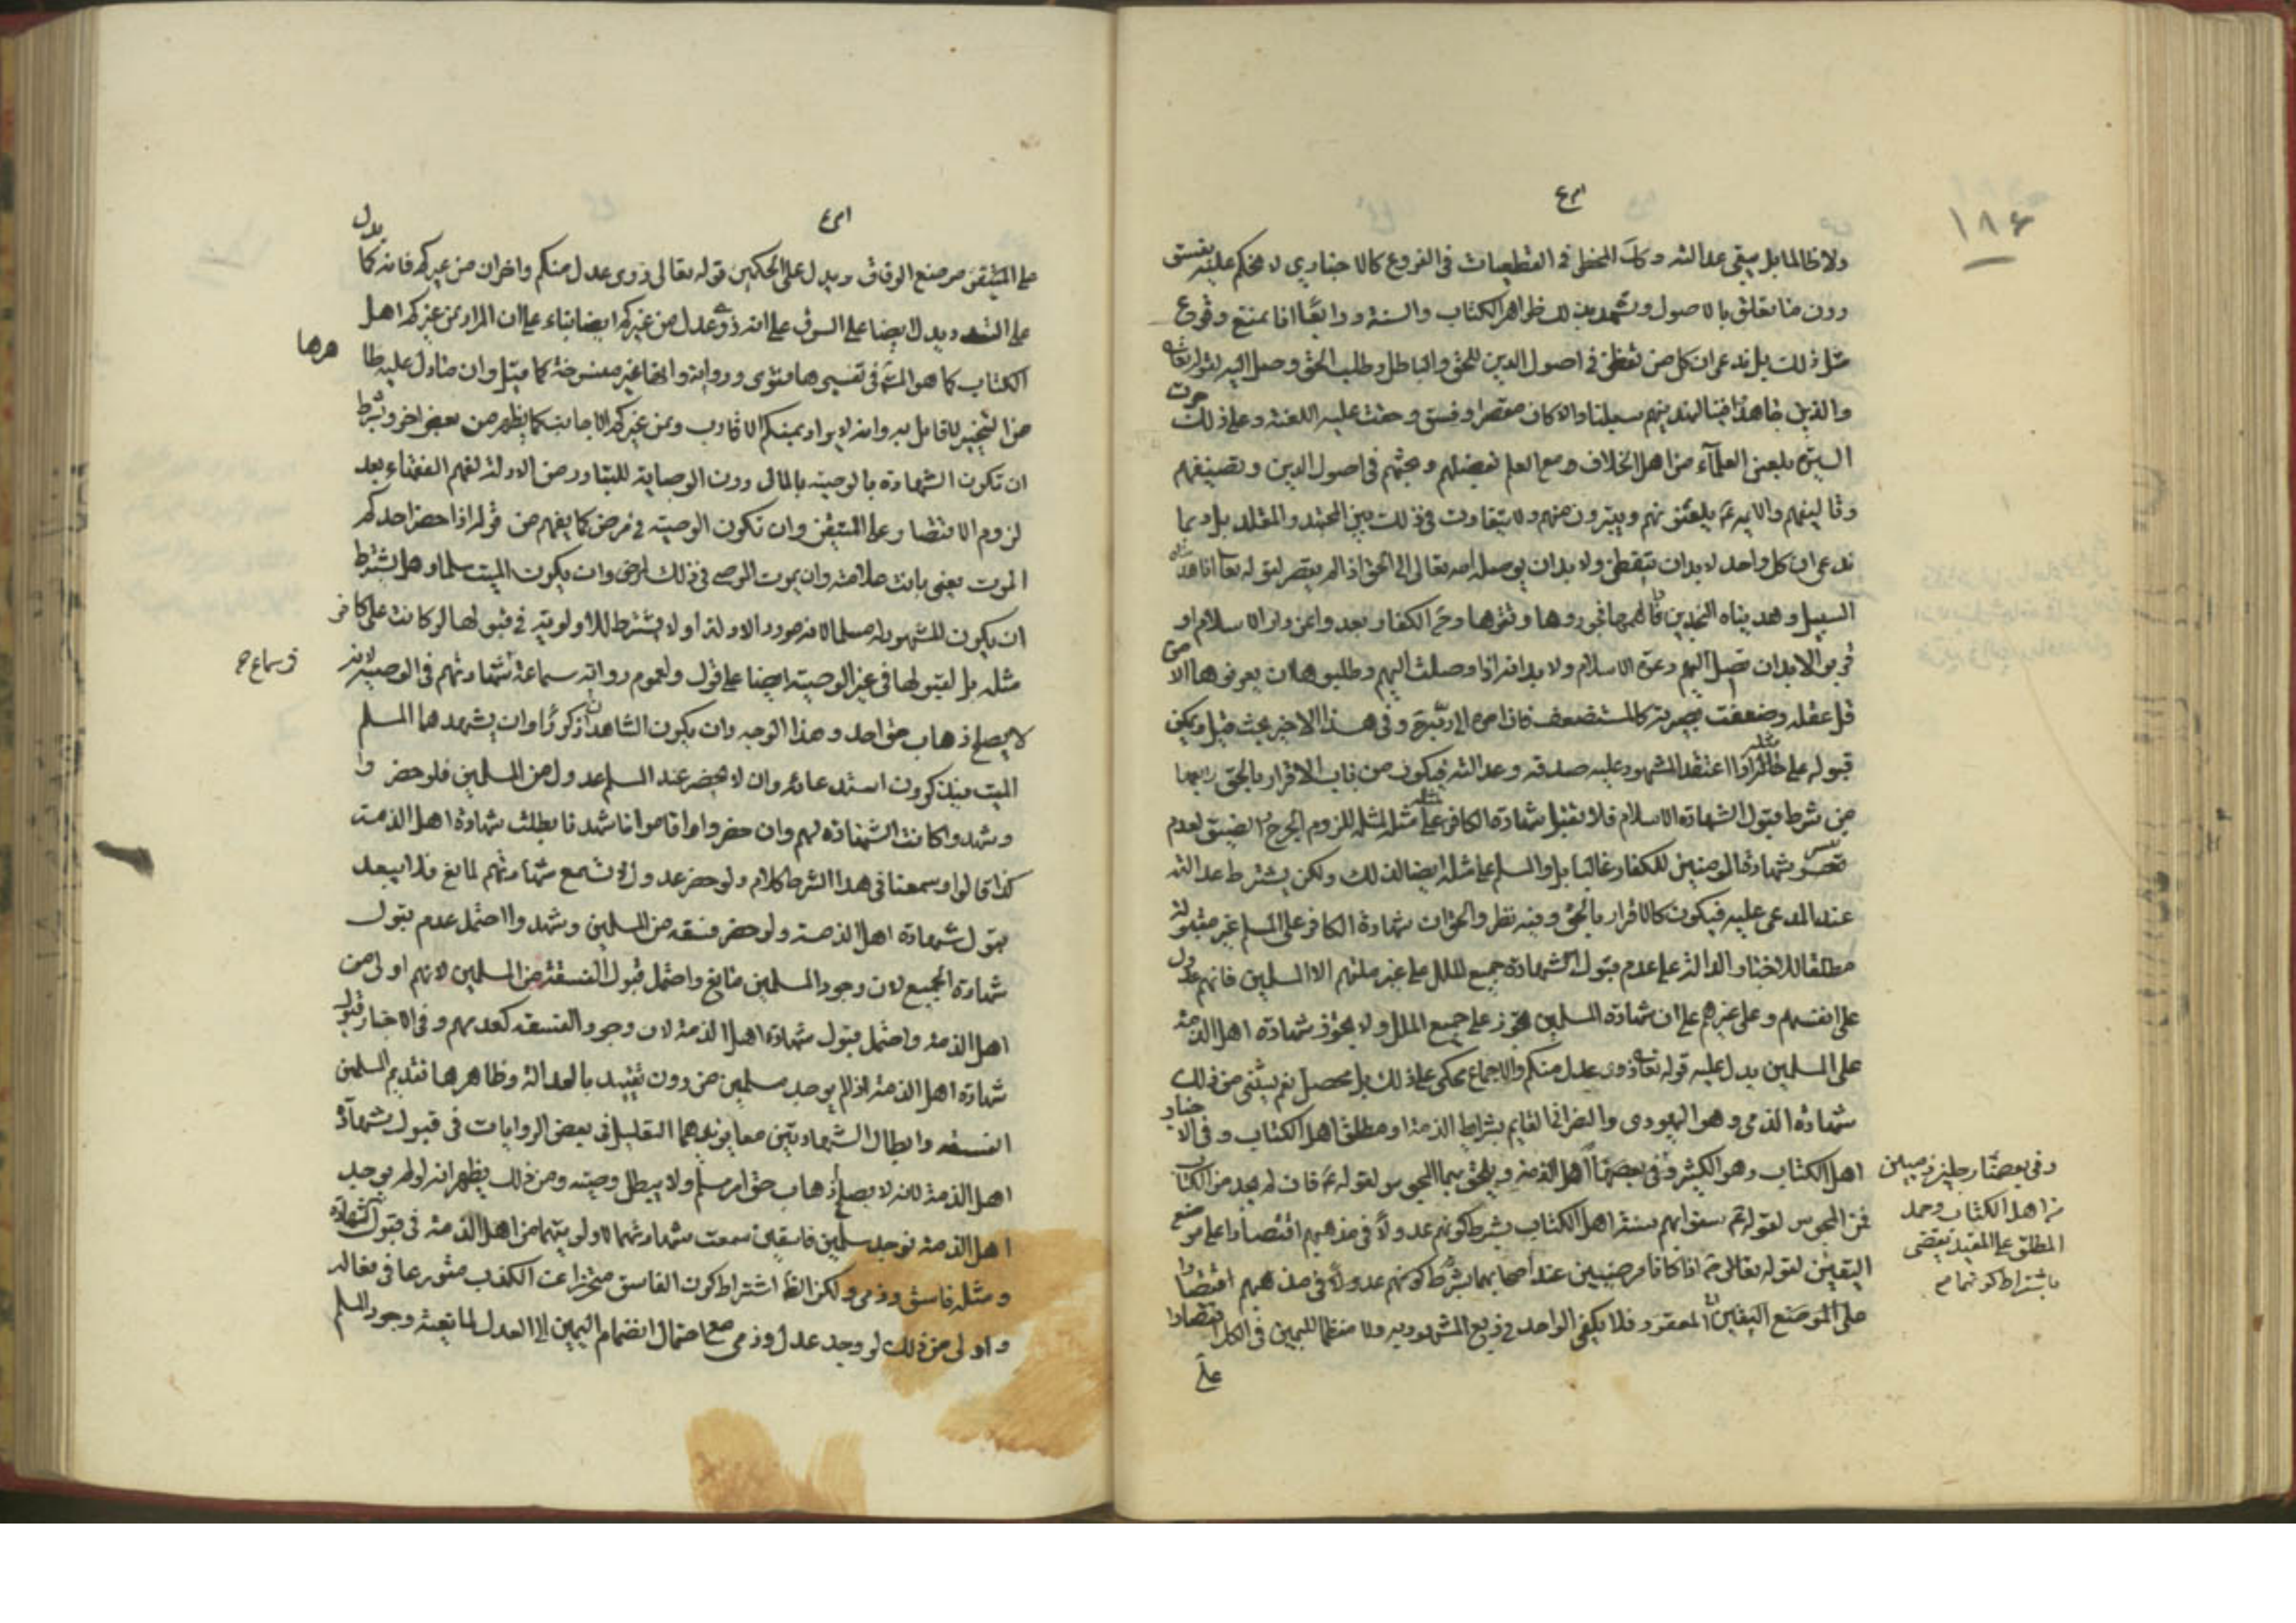 ١٨٤
ولا ظالما بل يبقى عدالته وكك المخطى في القطعيات في الفروع كالاخباري لا نحكم عليه بفسق
دون ما يتعلق بالاصول ويشهد بذلك ظواهر الكتاب والسنة ورابعا انا نمنع وقوع
مثل ذلك بل ندعى ان كل من تفطن في اصول الدين للحق والباطل وطلب الحق وصل اليه لقوله تعالى
والذين جاهدوا فينا لنهدينهم سبلنا والا كان مقصرا وفسق وحقت عليه اللعنة وعلى ذلك جرت
السيرة بلعن العلماء من اهل الخلاف ومع العلم بفضلهم وبحثهم في اصول الدين وتصنيفهم
وتاليفهم والائمة ع يلعنونهم ويتبرون منهم ولا يتفاوت في ذلك بين المجتهد والمقلد بل ربما
ندعى ان كل واحد لابد ان يتفطن ولابد ان يوصله الله تعالى الى الحق اذا لم يقصر لقوله تعالى انا هديناه
السبيل وهديناه النجدين فالهمها فجورها وتقوها وحكم الكفار بعدوا عن دار الاسلام او
قربوا لابد ان تصل اليهم دعوة الاسلام ولابد انه اذا وصلت اليهم وطلبوها ان يعرفوها الا من
قل عقله وضعفت بصيرته كالمستضعف فان امره الى ربه وفي هذا الاخير بحث قيل ويمكن
قبوله على مثله اذا اعتقد المشهود عليه صدقه وعدالته فيكون من باب الاقرار بالحق رابعها
من شرط قبول الشهادة الاسلام فلا تقبل شهادة الكافر على مثله لمثله للزوم الحرج والضيق لعدم
تيسر شهادة المؤمنين للكفار غالبا بل والمسلم على مثله ايضا لذلك ولكن يشترط عدالته
عند المدعى عليه فيكون كالاقرار بالحق وفيه نظر والحق ان شهادة الكافر على المسلم غير مقبولة
مطلقا للاخبار الدالة على عدم قبول شهادة جميع الملل على غير ملتهم الا المسلمين فانهم عدول
على انفسهم وعلى غيرهم على ان شهادة المسلمين تجوز على جميع الملل ولا يجوز شهادة اهل الذمة
على المسلمين يدل عليه قوله تعالى ذوى عدل منكم والاجماع محكى على ذلك بل محصل نعم يستثنى من ذلك
شهادة الذمى وهو اليهودى والنصرانى القايم بشرايط الذمة او مطلق اهل الكتاب وفي الاخبار
اهل الكتاب وهو الكثير وفي بعضها اهل الذمة ويلحق بهما المجوس لقوله ع فان لم يجد من اهل الكتاب
فمن المجوس لقولهم سنوا بهم سنة اهل الكتاب بشرط كونهم عدولا في مذهبهم اقتصارا على موضع
اليقين لقوله تعالى ثم اذا كانا مرضيين عند اصحابهما بشرط كونهم عدولا في مذهبهم اقتصارا
على الموضع اليقين المعقود فلا يكفى الواحد في ربع المشهود به ولا منضما لليمين في الكل اقتصارا
على
وفي بعضها رجلين ذميين
من اهل الكتاب وحمل
المطلق على المقيد يقضى
باشتراط كونهما
على المتيقن من منع الوفاق ويدل على الحكمين قوله تعالى ذوى عدل منكم واخران من غيركم فانه كما يدل
على التعدد ويدل ايضا على انه ذو عدل من غيركم ايضا بناء على ان المراد من غيركم اهل
الكتاب كما هو المشهور في تفسيرها فتوى ورواية وانها غير منسوخة كما قيل وان ما دل عليه ظاهرها
من التخيير لا قايل به وانه لا يراد بمنكم الاقارب ومن غيركم الاجانب كما يظهر من بعض اخر ويشترط
ان تكون الشهادة بالوصية بالمال دون الوصاية للتبادر من الادلة لفهم الفقهاء بعد
لزوم الاقتصار على المتيقن وان تكون الوصية في مرض كما يفهم من قوله اذا حضر احدكم
الموت يعنى بانت علاماته وان يموت الموصى في ذلك المرض وان يكون الميت مسلما وهل يشترط
ان يكون المشهود له مسلما لانه مورد الادلة او لا يشترط للاولوية في قبولها لو كانت على كافر
مثله بل لقبولها في غير الوصية ايضا على قول ولعموم رواية سماعة شهادتهم في الوصية لانه
لا يصلح ذهاب حق احد وهذا اوجه وان يكون الشاهدان ذكورا وان يشهدهما المسلم
الميت فيذكرون استدعائه وان لا يحضر عند المسلم عدول من المسلمين فلو حضروا
وشهدوا كانت الشهادة لهم وان حضروا واقاموا شهدنا بطلت شهادة اهل الذمة
كذا قالوا وسمعنا في هذا الشرط كلام ولو حضر عدول لا تسمع شهادتهم لمانع فلا يبعد
قبول شهادة اهل الذمة ولو حضر فسقة من المسلمين وشهدوا احتمل عدم قبول
شهادة الجميع لان وجود المسلمين مانع واحتمل قبول الفسقة من المسلمين لانهم اولى من
اهل الذمة واحتمل قبول شهادة اهل الذمة لان وجود الفسقة كعدمهم وفي الاخبار قبول
شهادة اهل الذمة اذا لم يوجد مسلمين من دون تقييد بالعدالة وظاهرها تقديم المسلمين
الفسقة وابطال الشهادتين معا يؤيدهما التعليل في بعض الروايات في قبول شهادة
اهل الذمة لانه لا يصلح ذهاب حق امرء مسلم ولا يبطل وصيته ومن ذلك يظهر انه لو لم يوجد
اهل الذمة فوجد مسلمين فاسقين سمعت شهادتهما لاولويتهما من اهل الذمة في قبول الشهادة
ومثله فاسق وذمى ولكن الظاهر اشتراط كون الفاسق متحرزا عن الكذب متورعا في مقاله
واولى من ذلك لو وجد عدل وذمى مع احتمال انضمام اليمين الى العدل لمانعية وجود المسلم